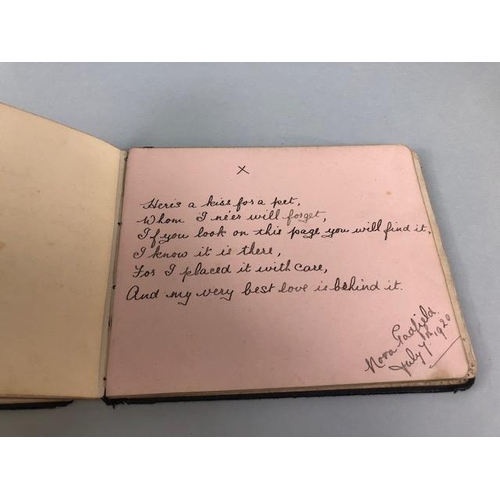 x
Here's a kiss for a pet,
Whom I ne'er will forget,
If you look on this page you will find it.
I know it is there,
For I placed it with care,
And my very best love is behind it.
Nora
July 7th 1920